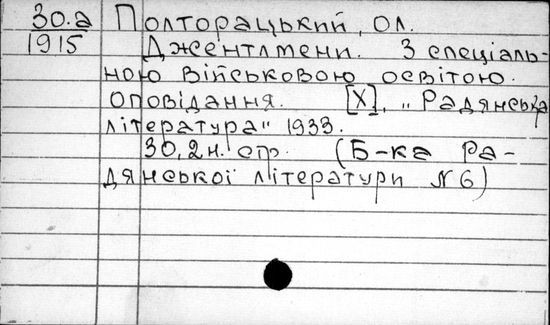 30.а Полторацький, ол.
1915 Джентлмени. З спеціаль-
ною військовою освітою.
оповідання. [Х], „Радянська
література" 1933.
30,2 н. стр. (Б-ка Ра-
дянської літератури N 6)